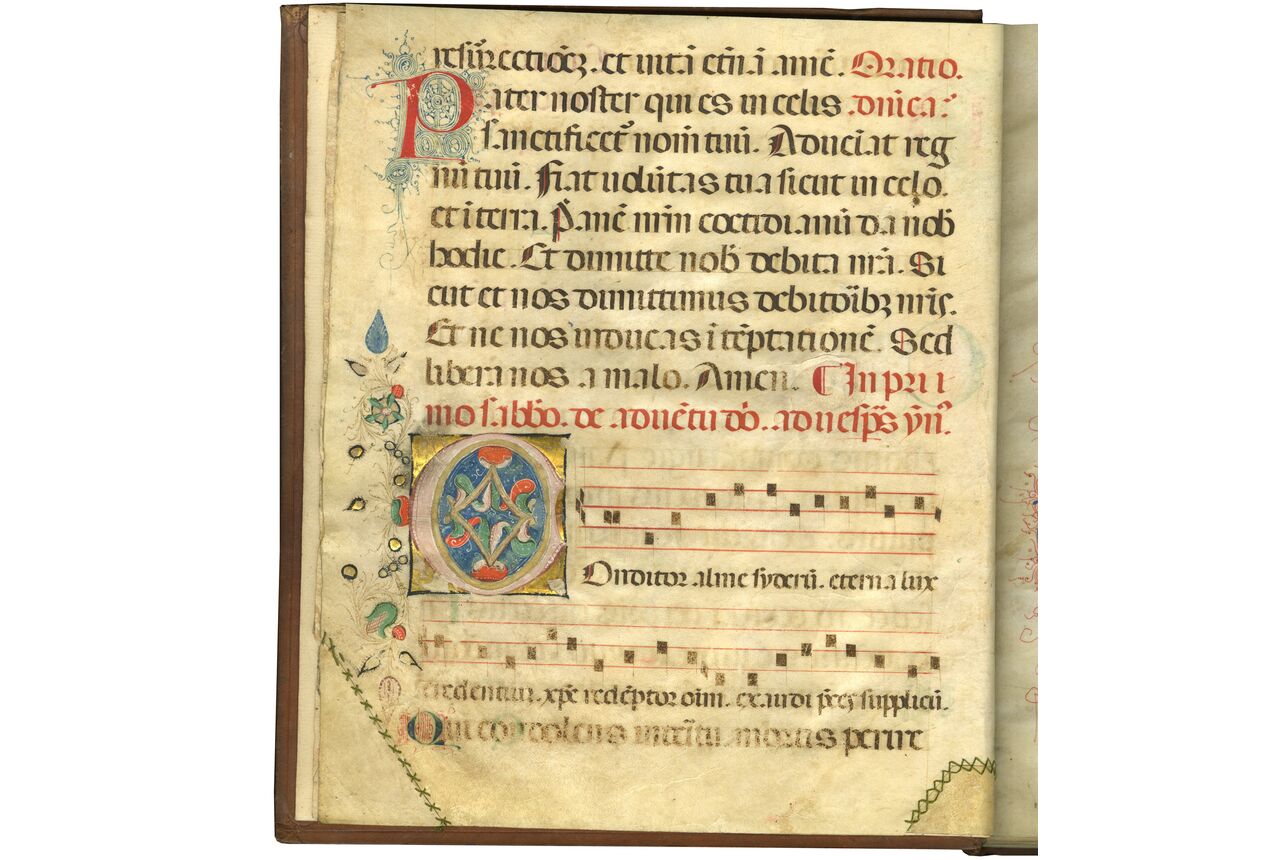 resurrectionē. et uitā etn̄ā amē. Oratio.
Pater noster qui es in celis .dn̄ica:
sanctificet᷑ nom̄ tuū. Adueniat reg
nū tuū. Fiat uolūtas tua sicut in celo.
et ī terra. Panē nr̄m cotidianū da nob̄
hodie. Et dimitte nob̄ debita nr̄a. Si
cut et nos dimittimus debitoībꝫ nr̄is.
Et ne nos inducas ī tēptationē. Sed
libera nos a malo. Amen. ¶ In pri
mo sabb̄o. de aduētu dn̄i. ad uesp̄s ym̄.
Conditor alme syderū. eterna lux
credentiū. xp̄e redēptor oīm. exaudi p̄ces supplicū.
Qui condolens interitu. mortis perire